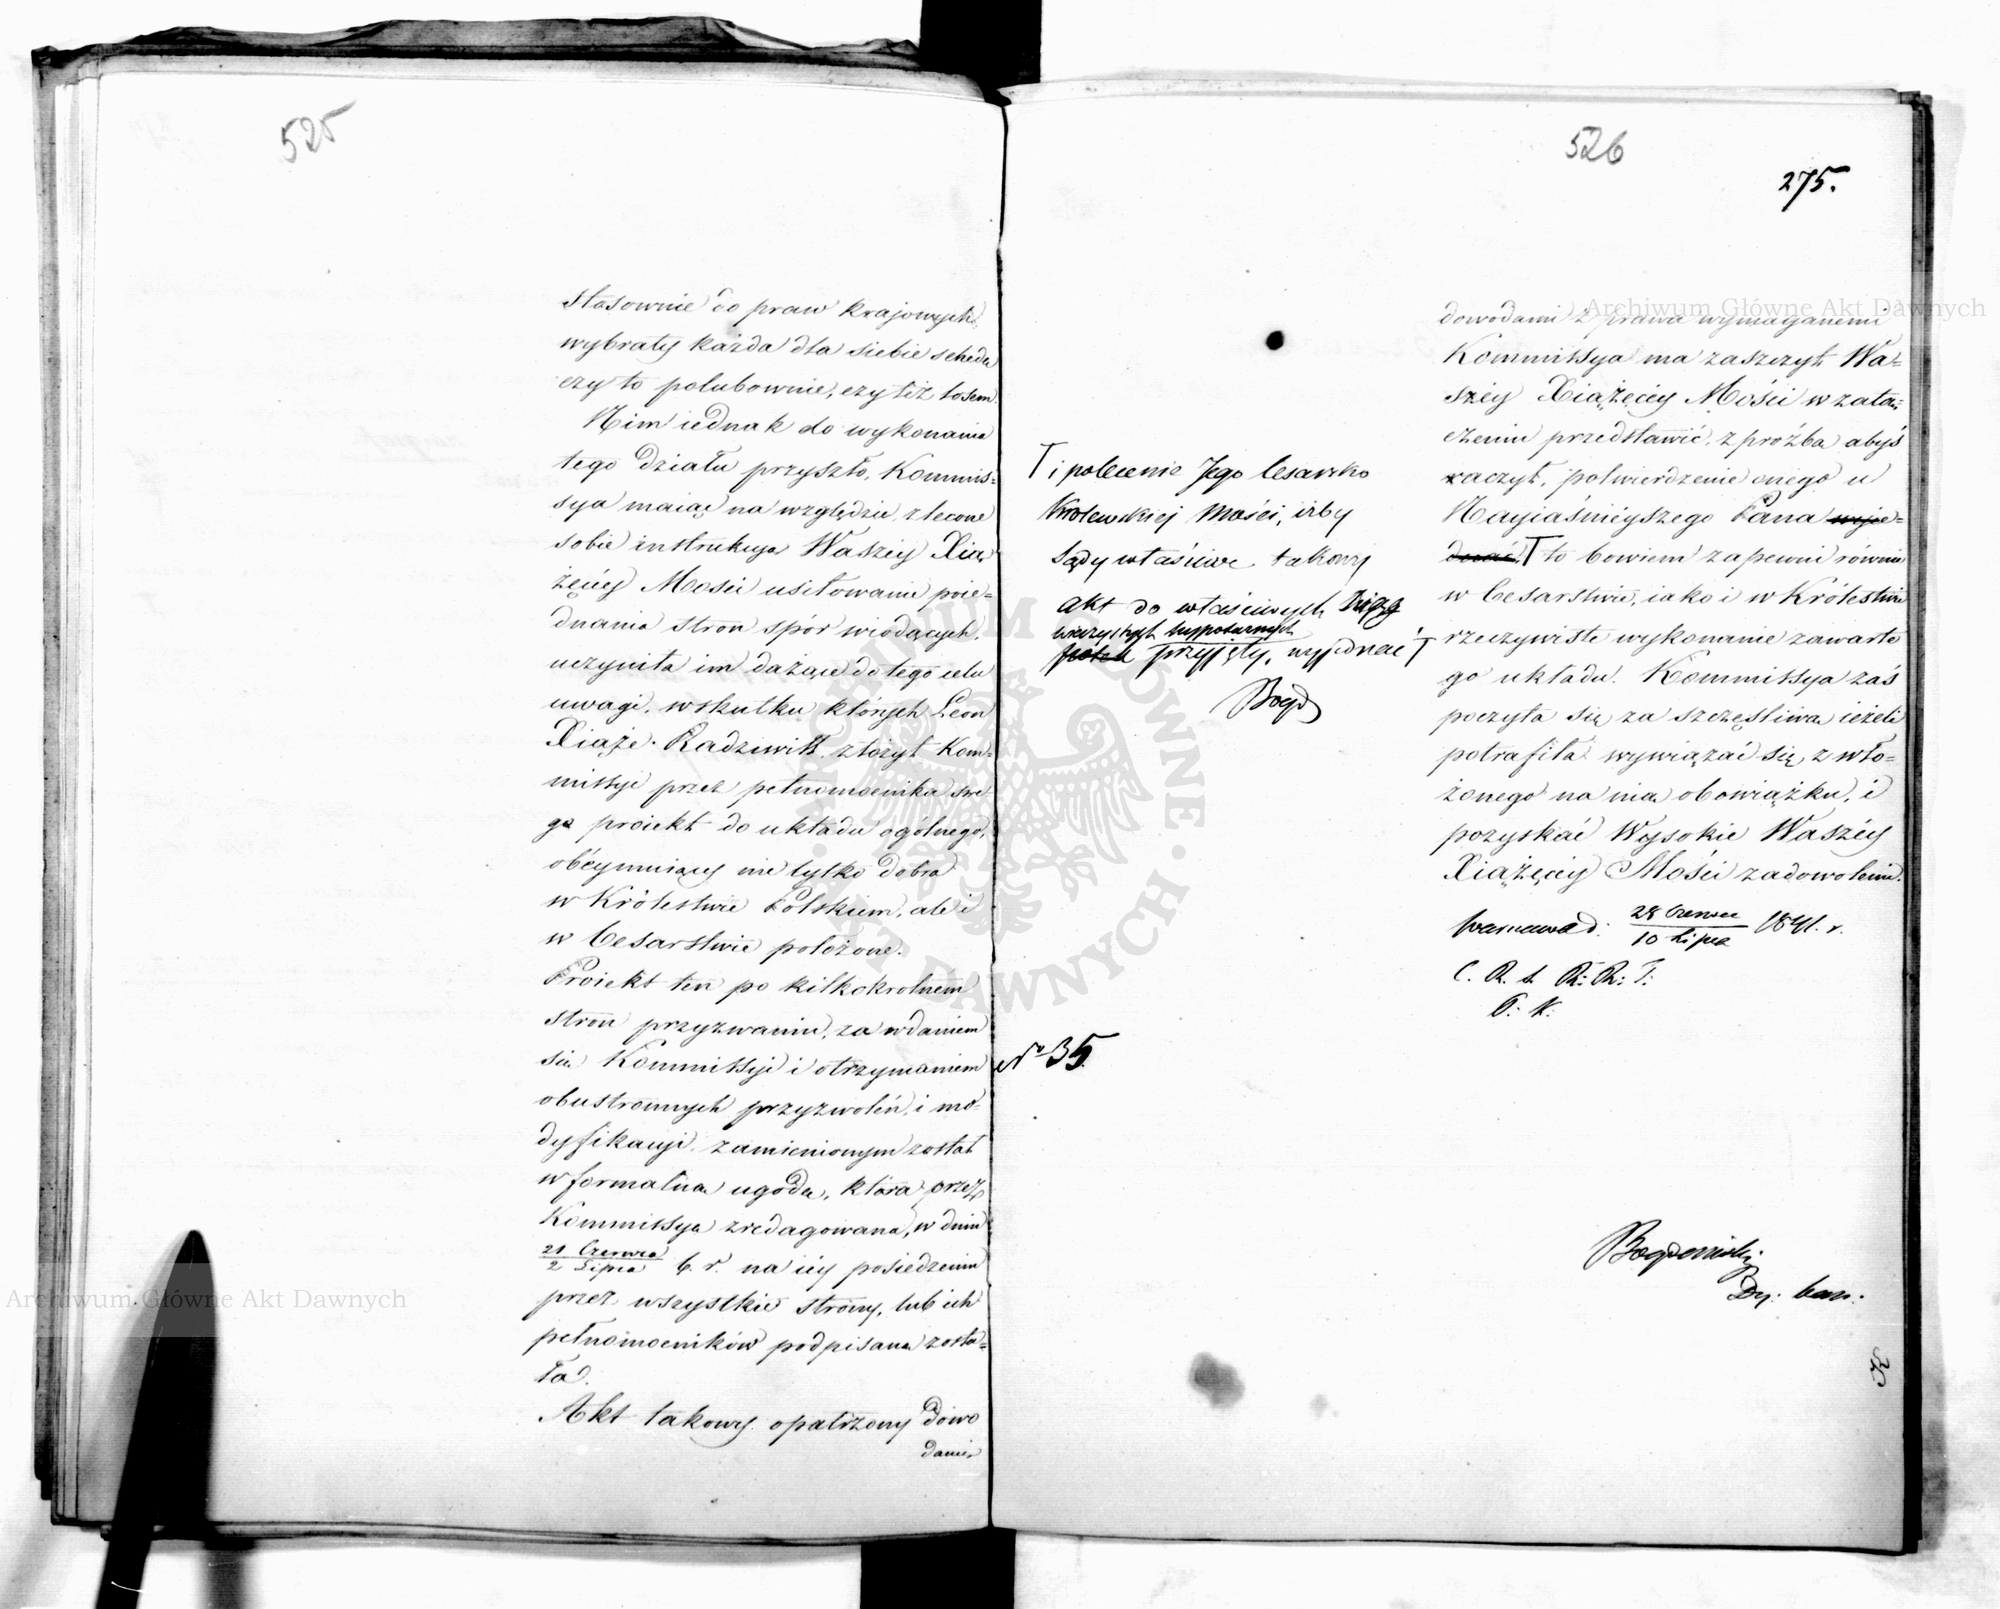 525
stosownie do praw krajowych,
wybrały każda dla siebie schedę
czy to polubownie, czy też losem.
Nim iednak do wykonania
tego działu przyszło, Kommis=
sya maiąc na względzie zlecone
sobie instrukcyą Waszéy Xią
żęcéy Mości usiłowanie poie=
dnania stron spór wiodących,
uczyniła im dążące do tego celu
uwagi, wskutku których Leon
Xiąże Radziwiłł złożył Kom=
missyi przez pełnomocnika swe
go proiekt do układu ogólnego,
obéymuiący nie tylko dobra
w Królestwie Polskiem, ale i
w Cesarstwie położone.
Proiekt ten po kilkokrotnem
stron przyzwaniu, za wdaniem
się Kommissyi i otrzymaniem
obustronnych przyzwoleń, i mo=
dyfikacyi, zamienionym został
w formalną ugodę, która przez
Kommissyą zredagowana, w dniu
21 Czerwca
2 Lipca b. r. na iéy posiedzeniu
przez wszystkie strony, lub ich
pełnomocników podpisaną zosta=
ła.
Akt takowy opatrzony dowo
dami
526
275.
T i polecenie Jego Cesarsko
Królewskiej Mości, iżby
Sądy właściwe takowy
akt do właściwych Xiąg
wieczystych hypotecznych
przyjęły, wyjednać T
Bogd
No 35.
dowodami z prawa wymaganemi
Kommissya ma zaszczyt Wa=
széy Xiążęcéy Mości w załą=
czeniu przedstawić, z proźbą abyś
raczył, potwierdzenie onego u
Nayiaśnieyszego Pana wyie=
dnać, T to bowiem zapewni równie
w Cesarstwie, iako i w Królestwie
rzeczywiste wykonanie zawarte
go układu. Kommissya zaś
poczyta się za szczęśliwą ieżeli
potrafiła wywiązać się z wło=
żonego na nią obowiązku, i
pozyskać Wysokie Waszéy
Xiążęcéy Mości zadowolenie.
Warszawa d. 28 Czerwca
10 Lipca 1841. r.
C. R. s. R: R: T:
P. K.
Dy: kan:
Archiwum Główne Akt Dawnych
Archiwum Główne Akt Dawnych
ARCHIWUM GŁÓWNE AKT DAWNYCH